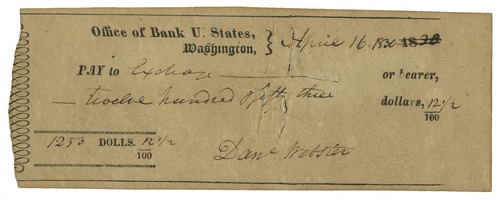 Office of Bank U. States,
Washington, April 16. 1830
PAY to Exchange or bearer,
twelve hundred & fifty three dollars, 12 1/2/100
1253 DOLLS. 12 1/2/100
Danl Webster